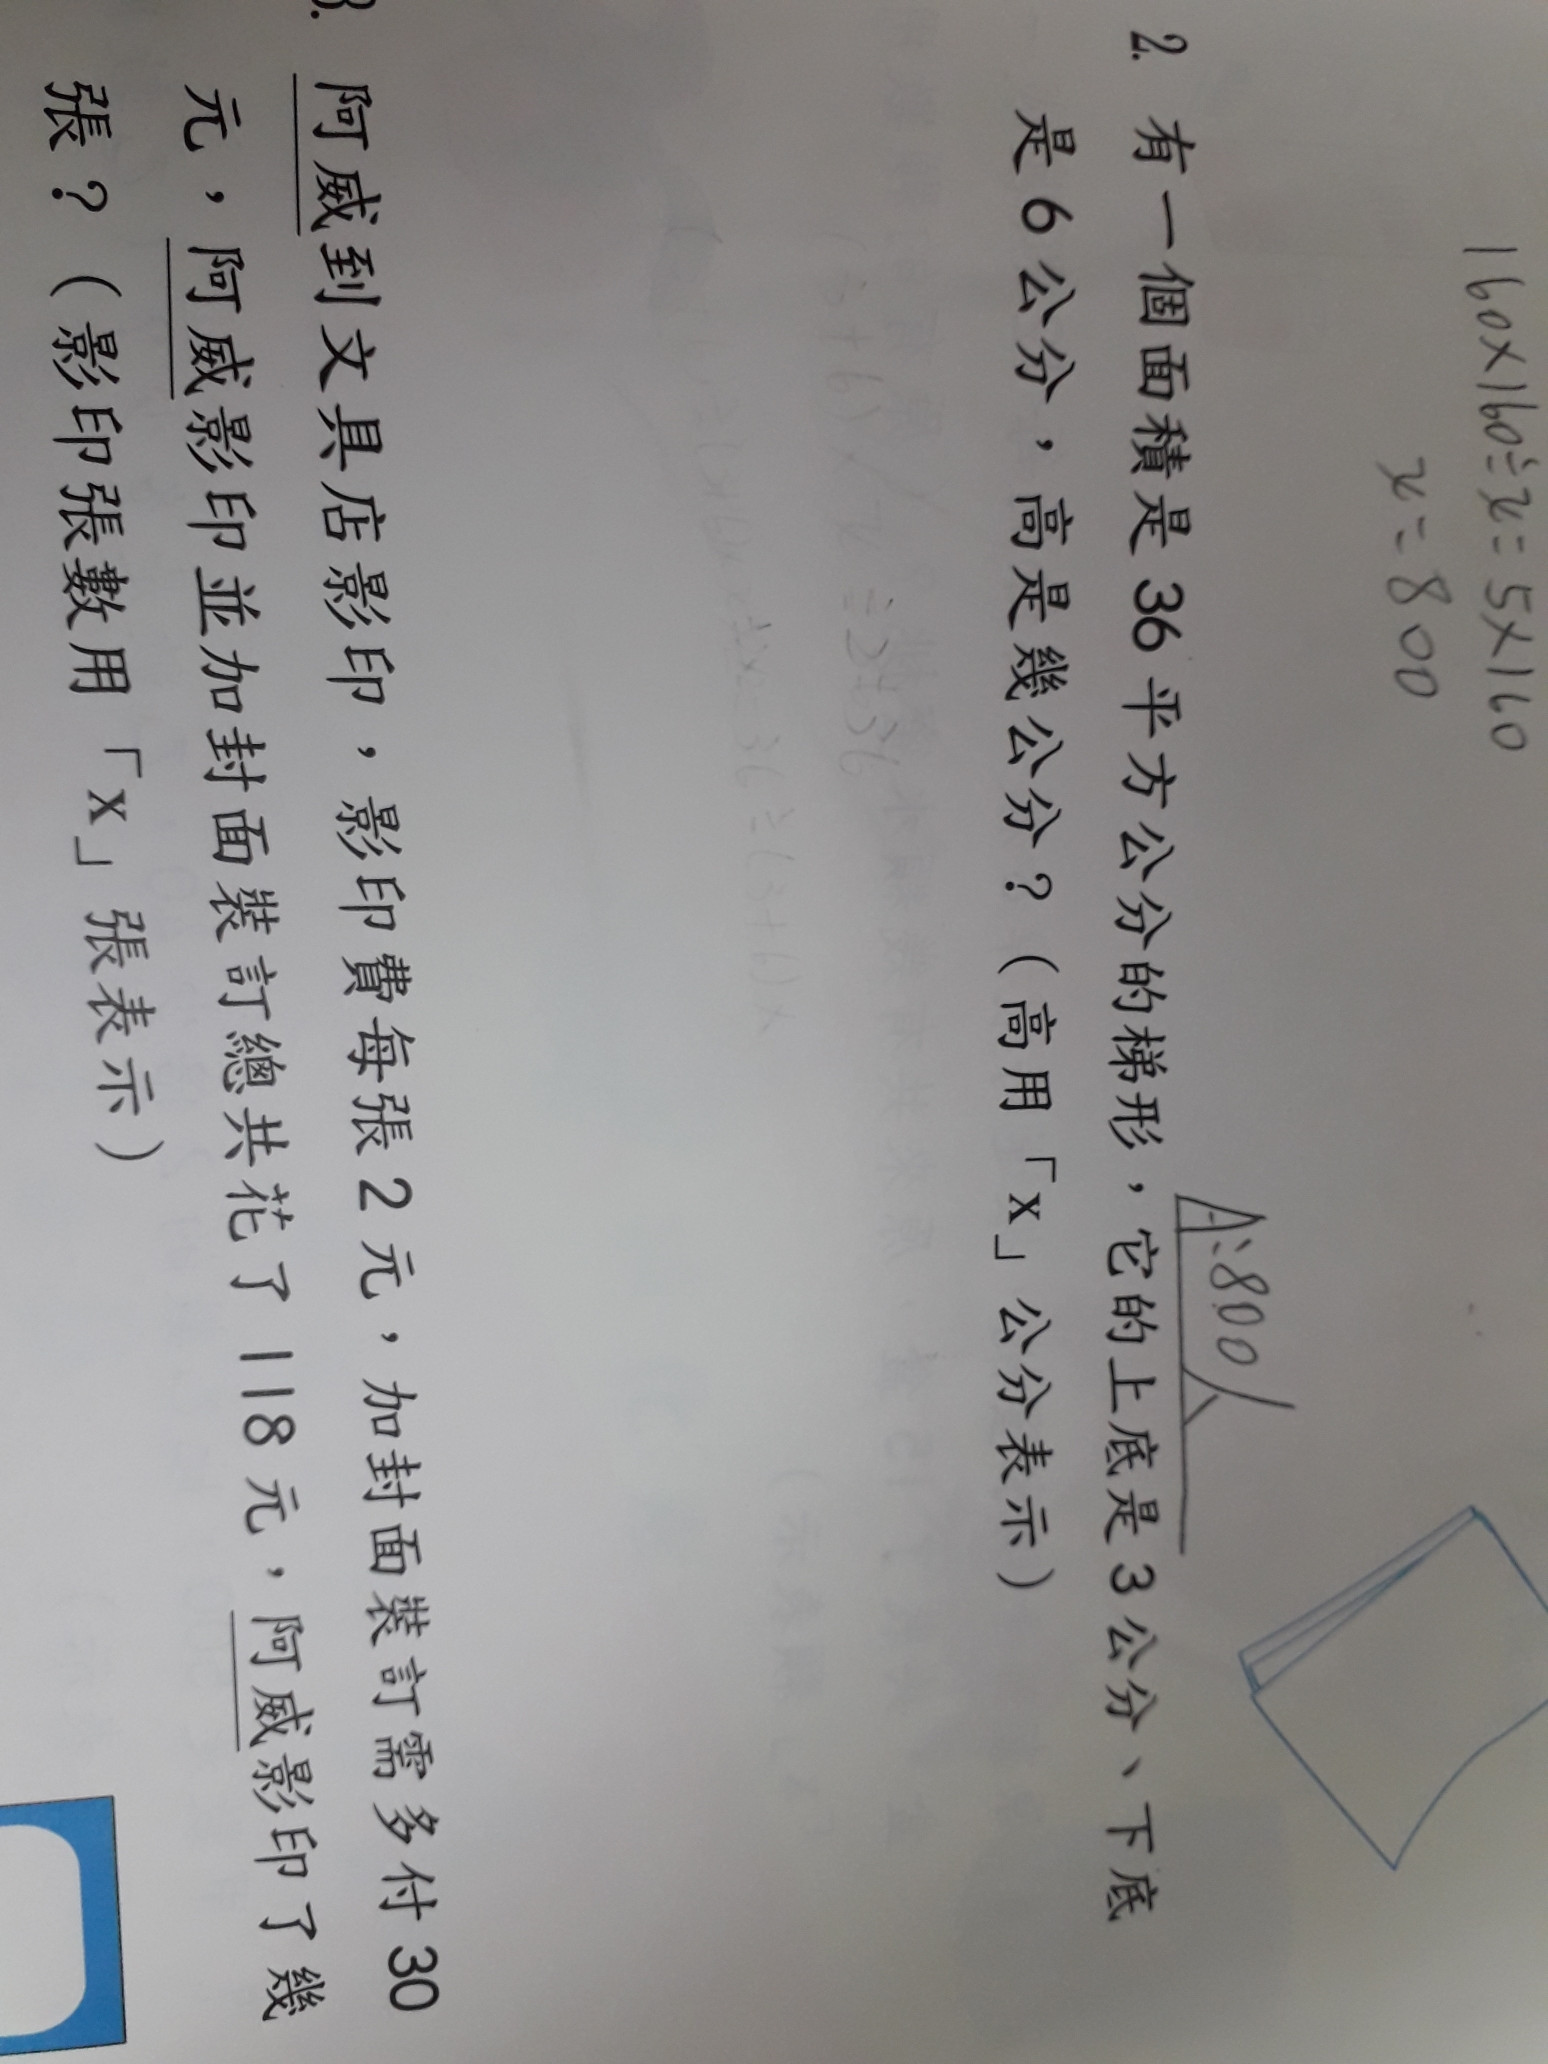 160×160÷x=5×160
x=800
A:800
2. 有一個面積是36平方公分的梯形,它的上底是3公分、下底
是6公分,高是幾公分?(高用「x」公分表示)
3. 阿威到文具店影印,影印費每張2元,加封面裝訂需多付30
元,阿威影印並加封面裝訂總共花了118元,阿威影印了幾
張?(影印張數用「x」張表示)